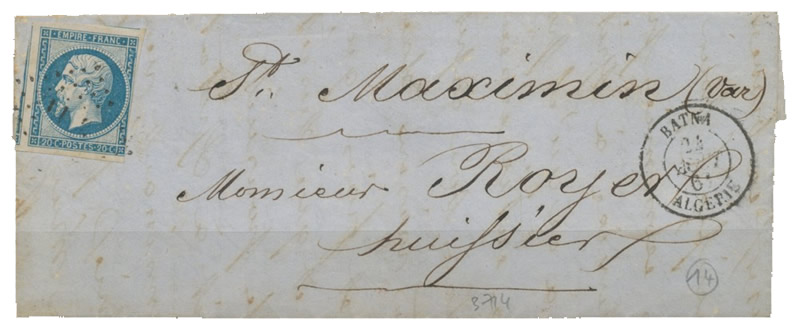 EMPIRE FRANC.
20 C. POSTES 20 C.
St. Maximin (Var)
Monsieur Royer
huissier
BATNA
24
ALGERIE
14
3714